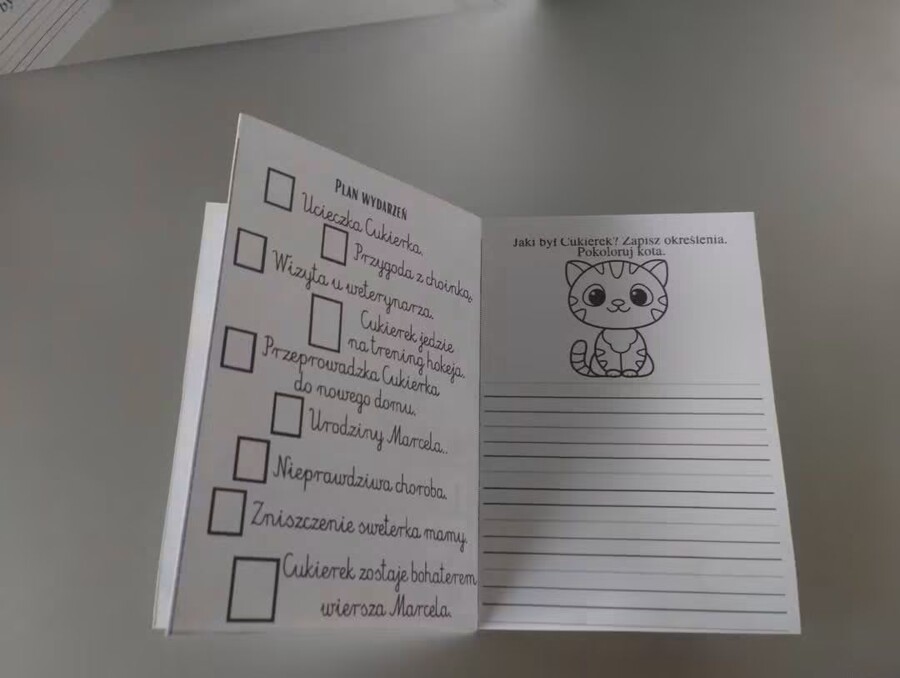 PLAN WYDARZEŃ
Ucieczka Cukierka.
Przygoda z choinką.
Wizyta u weterynarza.
Cukierek jedzie
na trening hokeja.
Przeprowadzka Cukierka
do nowego domu.
Urodziny Marcela..
Nieprawdziwa choroba.
Zniszczenie sweterka mamy.
Cukierek zostaje bohaterem
wiersza Marcela.
Jaki był Cukierek? Zapisz określenia.
Pokoloruj kota.